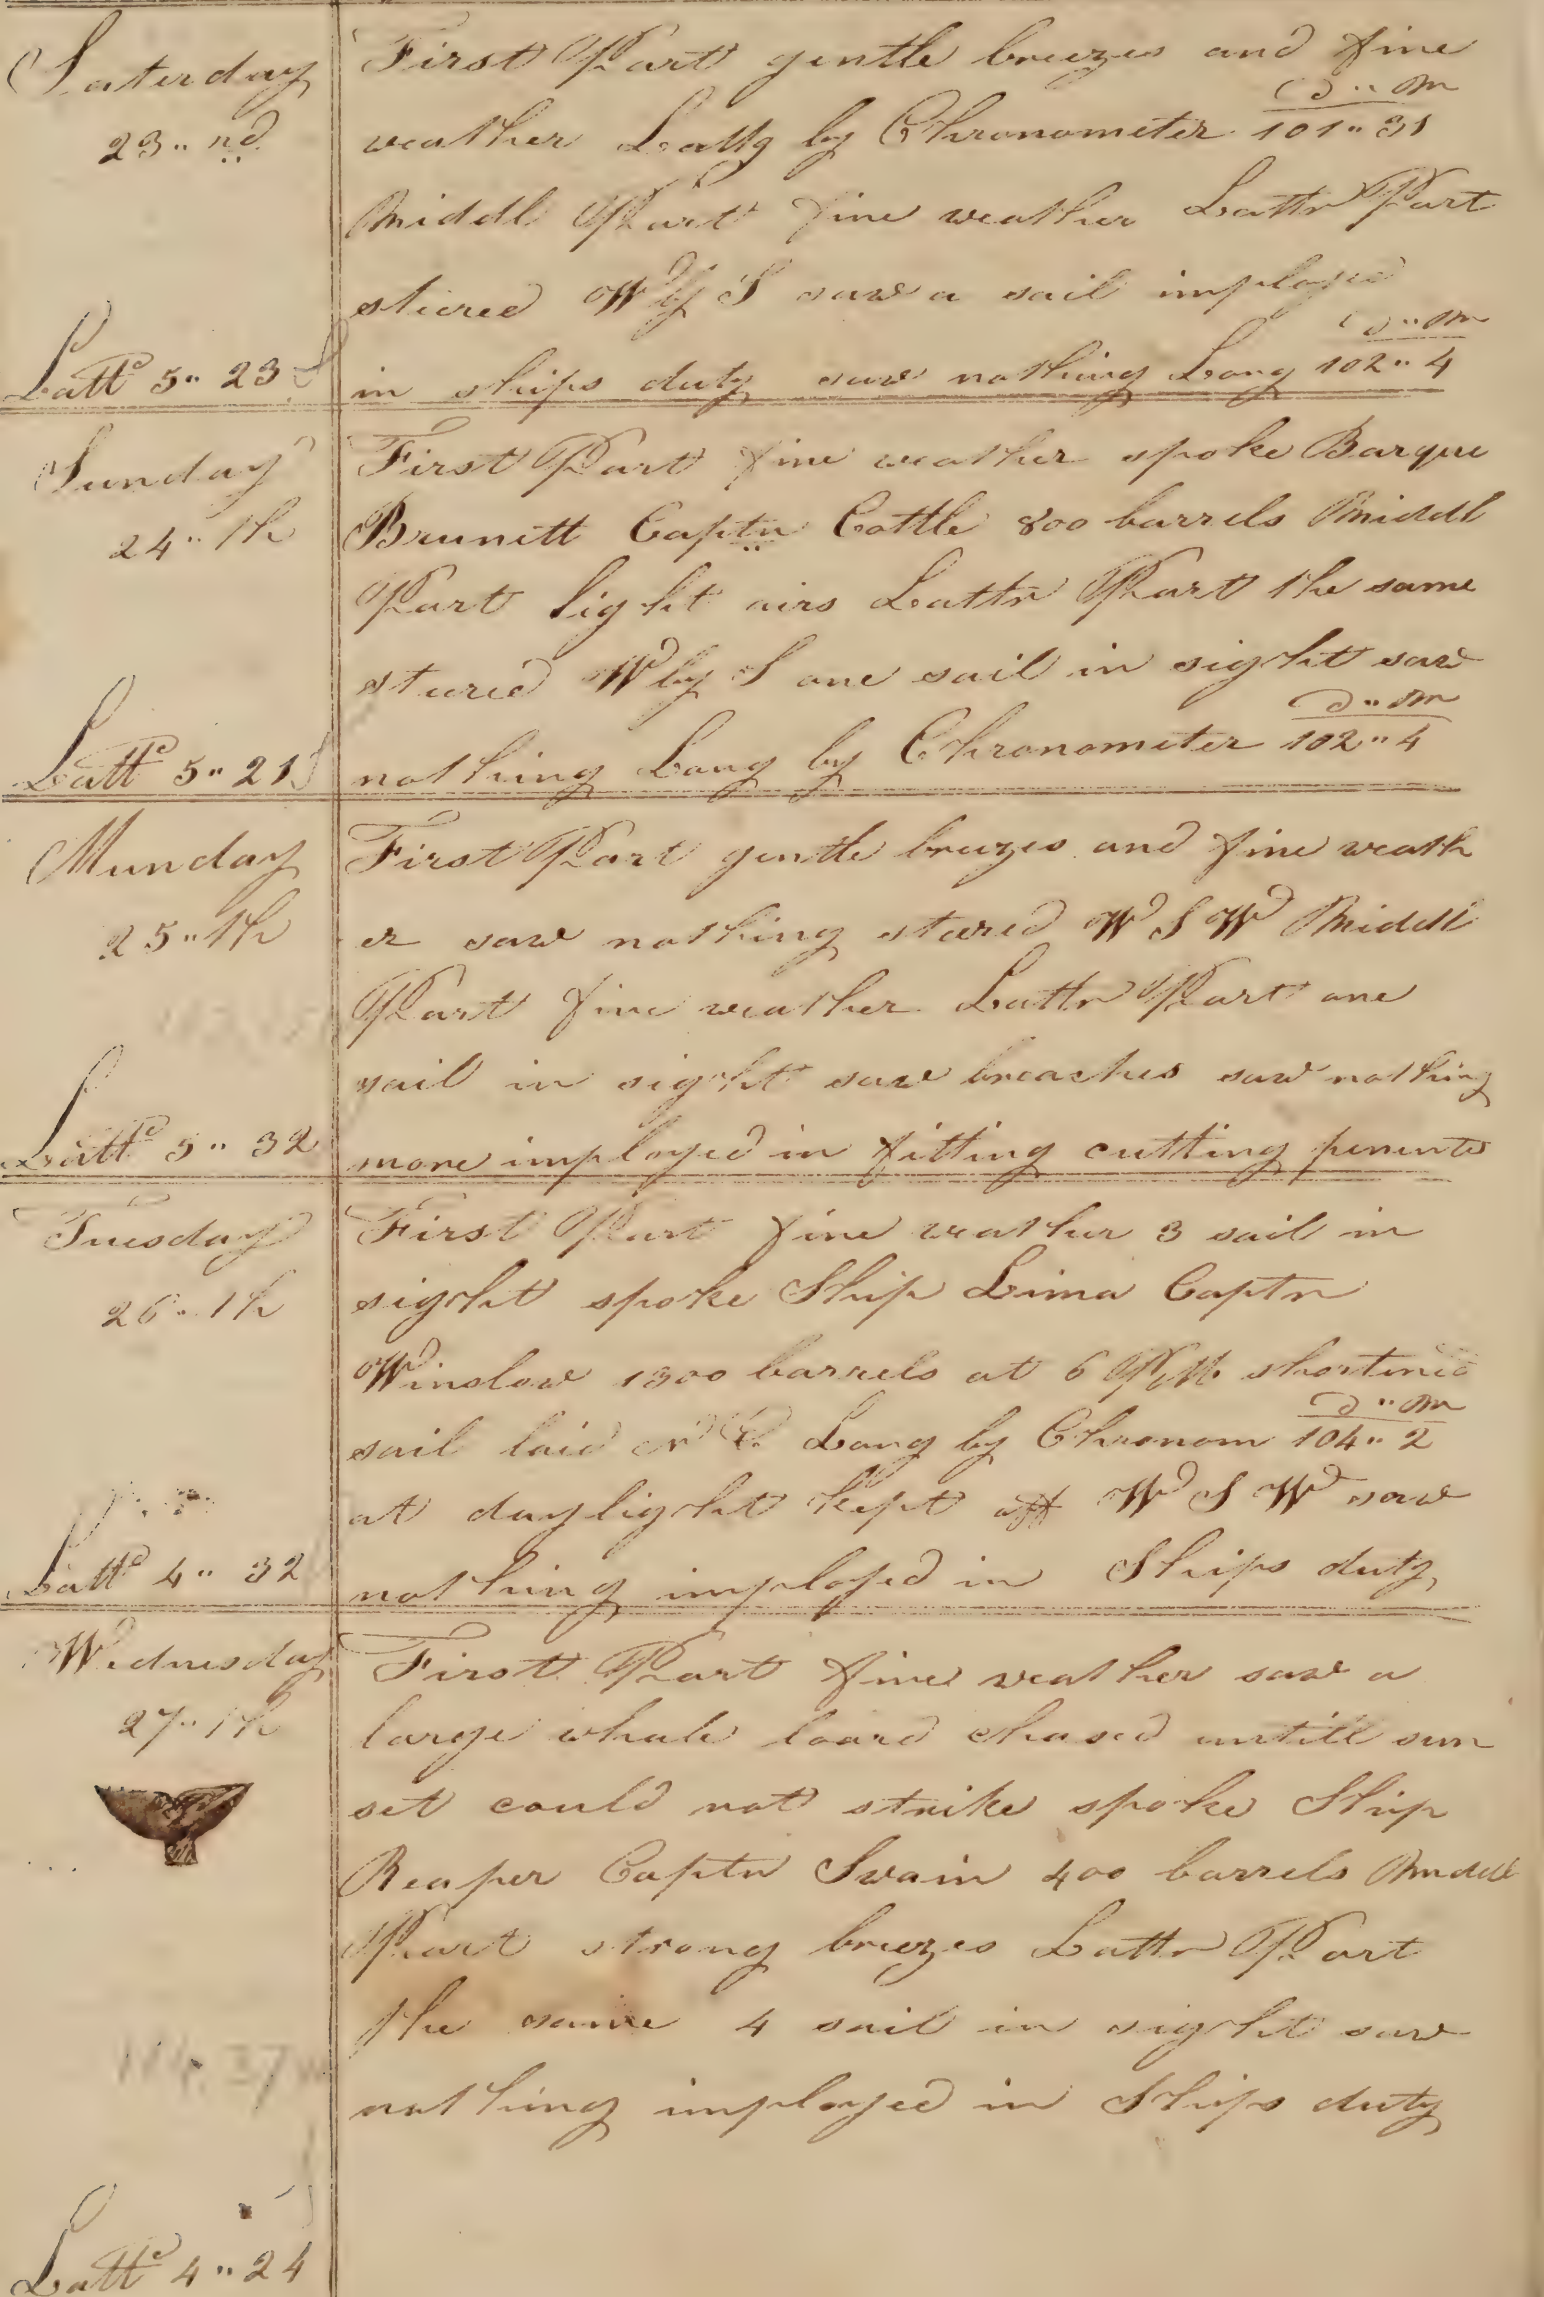 Saterday
23" nd
Lattd 5" 23 S
First Part gentle breezes and fine
D" M
weather Long by Chronometer 101" 31
Middl Part fine weather Lattr Part
steered W by S saw a sail imployed
D" M
in ships duty saw nothing Long 102" 4
Sunday
24" th
Lattd 5" 21 S
First Part fine weather spoke Barque
Brunitt Captn Cottle 800 barrels Middl
Part light airs Lattr Part the same
steered W by S one sail in sight saw
D" M
nothing Long by Chronometer 102" 4
Munday
25" th
Lattd 5" 32
First Part gentle breezes and fine weath
er saw nothing steered W S W Middl
Part fine weather Lattr Part one
sail in sight saw breaches saw nothing
more imployed in fitting cutting penents
Tuesday
26" th
Lattd 4" 32
First Part fine weather 3 sail in
sight spoke Ship Lima Captn
Winslow 1300 barrels at 6 PM shortined
D" M
sail laid Long by Chronom 104" 2
at daylight kept off W S W saw
nothing imployed in Ships duty
Wednesday
27" th
Lattd 4" 24
First Part fine weather saw a
large whale loard chased untill sun
set could not strike spoke Ship
Reaper Captn Swain 400 barrels Middl
Part strong breezes Lattr Part
the same 4 sail in sight saw
nothing imployed in Ships duty